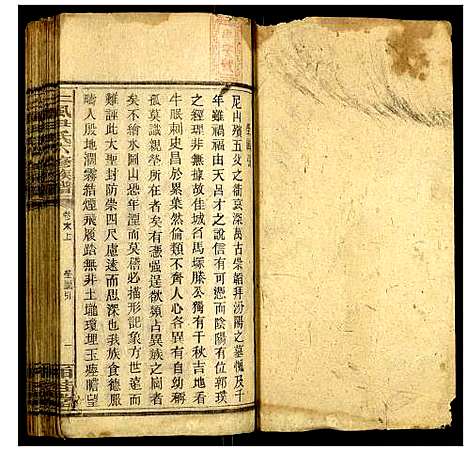 足山殯五父之衢哀深萬古崇韜拜汾陽之墓愧及千
年雖禍福由天呂才之說信有可憑而陰陽有位郭璞
之經理非無據故佳城石馬塚滕公獨有千秋吉地看
牛眠刺史昌於累葉然倫類不齊人心各異有自幼稱
孤莫識親塋所在何日欲類占異族之岡者
矣不繪水圖山恐年湮而莫稽必描形象方世遠而
難誣此大聖封防崇四尺慮遠而思深也我族食德服
疇人殷地濶霧結煙飛履踏無非土壠瓊埋玉瘞瞻望
氏六修族譜 卷末上 塋圖引 一